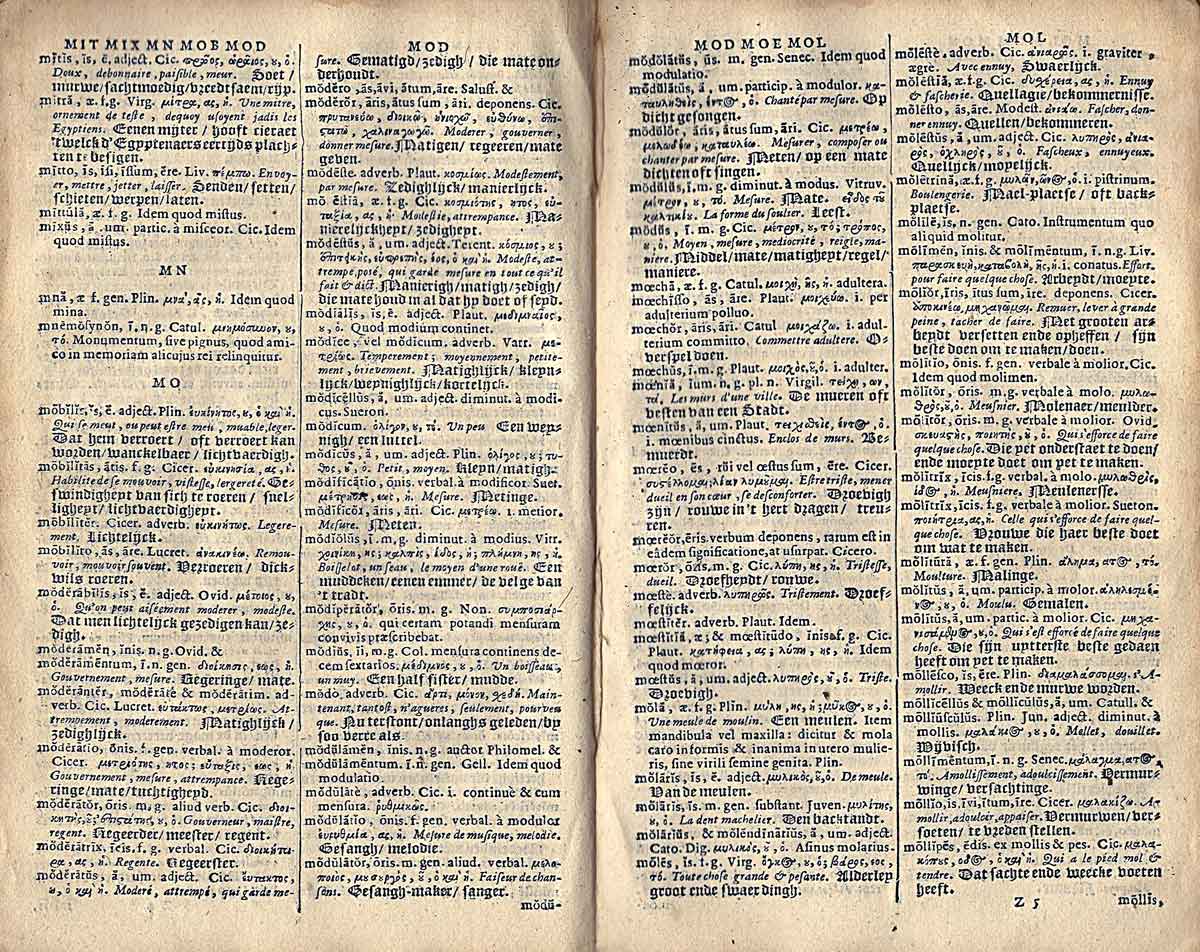 MIT MIX MN MOB MOD
mītis, is, ĕ, adject. Cic.
Doux, debonnaire, paisible, meur. Soet /
murwe / sachtmoedig / vreedtsaem / rijp.
mitră, æ. f. g. Virg. μίτρα, ας, ἡ. Une mitre,
ornement de teste, dequoy usoyent jadis les
Egyptiens. Eenen mijter / hooft cieraet
'twelck d'Egyptenaers eertyds plach-
ten te besigen.
mitto, is, īsi, issum, ĕre. Liv. πέμπω. Envoy-
er, mettre, jetter, laisser. Senden / setten /
schieten / werpen / laten.
mitŭlă, æ. f. g. Idem quod mistus.
mixŭs, ă, um. partic. à misceor. Cic. Idem
quod mistus.
MN
mnă, æ f. gen. Plin. μνᾶ, ᾶς, ἡ. Idem quod
mina.
mnēmŏsynŏn, ī. n. g. Catul. μνημόσυνον, ȣ,
τό. Monumentum, sive pignus, quod ami-
co in memoriam alicujus rei relinquitur.
MO
mōbĭlis, is, ĕ. adject. Plin. εὐκίνητος, ȣ, ὁ καὶ ἡ.
Qui se meut, ou peut estre meu, muable, leger.
Dat hem verroert / oft verroert kan
worden / wanckelbaer / lichtvaerdigh.
mōbĭlitās, ātis. f. g. Cicer. εὐκινησία, ας, ἡ.
Habilité de se mouvoir, vistesse, legereté. Ge-
swindigheyt van sich te roeren / snel-
ligheyt / lichtvaerdigheyt.
mōbĭlĭter. Cicer. adverb. εὐκινήτως. Legere-
ment. Lichtelijck.
mōbĭlĭto, ās, āre. Lucret. ἀνακινέω. Remou-
voir, mouvoir souvent. Verroeren / dick-
wils roeren.
mŏdĕrābĭlis, is, ĕ. adject. Ovid. μέτριος, ȣ,
ὁ. Qu'on peut aisément moderer, modeste.
Dat men lichtelijck gezedigen kan / ze-
digh.
mŏdĕrāmĕn, ĭnis. n. g. Ovid. &
mŏdĕrāmĕntum, ī. n. gen. διοίκησις, εως, ἡ.
Gouvernement, mesure. Regeringe / mate.
mŏdĕrāntĕr, mŏdĕrātē & mŏdĕrātim. ad-
verb. Cic. Lucret. εὐτάκτως, μετρίως. At-
trempement, moderement. Matighlijck /
zedighlijck.
mŏdĕrātio, ōnis. f. gen. verbal. à moderor.
Cicer. μετριότης, ητος; εὐταξις, εως, ἡ.
Gouvernement, mesure, attrempance. Rege-
ringe / mate / tuchtigheyd.
mŏdĕrātŏr, ōris. m. g. aliud verb. Cic. διοι-
Gouverneur, maistre,
regent. Regeerder / meester / regent.
mŏdĕrātrīx, īcis. f. g. verbal. Cic. διοικήτει-
ρα, ας, ἡ. Regente. Regeerster.
mŏdĕrātŭs, ă, um. adject. Cic. εὔτακτος,
ȣ, ὁ καὶ ἡ. Moderé, attrempé, qui garde me-
MOD
sure. Gematigd / zedigh / die mate on-
derhoudt.
mŏdĕro, ās, āvi, ātum, āre. Salust. &
mŏdĕrŏr, āris, ātus sum, āri. deponens. Cic.
Moderer, gouverner,
donner mesure. Matigen / regeeren / mate
geven.
mŏdĕstē. adverb. Plaut. κοσμίως. Modestement,
par mesure. Zedighlijck / manierlijck.
mŏdĕstiă, æ. f. g. Cic. κοσμιότης, ητος, εὐ-
ταξία, ας, ἡ. Modestie, attrempance. Ma-
nierelijckheyt / zedigheyt.
mŏdĕstŭs, ă, um. adject. Terent. κόσμιος, ȣ;
Modeste, at-
trempe, posé, qui garde mesure en tout ce qu'il
fait & dict. Manierigh / matigh / zedigh /
die mate houd in al dat hy doet of seyd.
mŏdiālis, is, ĕ. adject. Plaut. μεδιμναῖος,
ȣ, ὁ. Quod modium continet.
mŏdĭcē, vel mŏdĭcum. adverb. Varr. με-
τρίως. Temperement, moyennement, petite-
ment, brievement. Matighlijck / kleyn-
lijck / weynighlijck / kortelijck.
mŏdĭcĕllŭs, ă, um. adject. diminut. à modi-
cus. Sueton.
mŏdĭcum. ὀλίγον, ȣ, τό. Un peu Een wey-
nigh / een luttel.
mŏdĭcŭs, ă, um. adject. Plin. ὀλίγος, ȣ; τυ-
τθὸς, ȣ, ὁ. Petit, moyen. Kleyn / matigh.
mŏdĭfĭcātio, ōnis. verbal. à modificor. Suet.
μέτρησις, εως, ἡ. Mesure. Metinge.
mŏdĭfĭcŏr, āris, āri. Cic. μετρέω. i. metior.
Mesure. Meten.
mŏdĭŏlŭs, ī. m. g. diminut. à modius. Vitr.
χοινίκη, ης; καλπὶς, ίδος, ἡ; πλήμνη, ης, ἡ.
Boisselot, un seau, le moyen d'une rouë. Een
muddeken / eenen emmer / de velge van
't radt.
mŏdĭpĕrātŏr, ōris. m. g. Non. συμποσιάρ-
χης, ȣ, ὁ. qui certam potandi mensuram
convivis præscribebat.
mŏdĭŭs, ĭi, m. g. Col. mensura continens de-
cem sextarios. μέδιμνος, ȣ, ὁ. Un boisseau,
un muy. Een half sister / mudde.
mŏdo. adverb. Cic. ἄρτι, μόνον, σχεδή. Main-
tenant, tantost, n'agueres, seulement, pourveu
que. Nu terstont / onlanghs geleden / by
soo verre als.
mŏdŭlāmĕn, ĭnis. n. g. auctor Philomel. &
mŏdŭlāmĕntum. ī. n. gen. Gell. Idem quod
modulatio.
mŏdŭlātē, adverb. Cic. i. continuè & cum
mensura. ῥυθμικῶς.
mŏdŭlātio, ōnis. f. gen. verbal. à modulor
εὐρυθμία, ας, ἡ. Mesure de musique, melodie.
Gesangh / melodie.
mŏdŭlātŏr, ōris. m. gen. aliud. verbal. μελο-
ποιὸς, μȣσȣργὸς, ȣ, ὁ καὶ ἡ. Faiseur de chan-
sons. Gesangh-maker / sanger.
mŏdŭ-
MOD MOE MOL
mŏdŭlātŭs, ūs. m. gen. Senec. Idem quod
modulatio.
mŏdŭlātŭs, ă, um. particip. à modulor. κα-
Chanté par mesure. Op
dicht gesongen.
mŏdŭlŏr, āris, ātus sum, āri. Cic. μετρέω,
μελωδέω, καταυλέω. Mesurer, composer ou
chanter par mesure. Meten / op een mate
dichten oft singen.
mŏdŭlŭs, ī. m. g. diminut. à modus. Vitruv.
μέτρον, ȣ, τό. Mesure. Mate. εἶδος τȣ̃
La forme du soulier. Leest.
mŏdŭs, ī. m. g. Cic. μέτρον, ȣ, τό; τρόπος,
ȣ, ὁ. Moyen, mesure, mediocrité, reigle, ma-
niere. Middel / mate / matigheyt / regel /
maniere.
mœchă, æ. f. g. Catul. μοιχὴ, ῆς, ἡ. adultera.
mœchīsso, ās, āre. Plaut. μοιχεύω. i. per
adulterium polluo.
mœchŏr, āris, āri. Catul μοιχάζω. i. adul-
terium committo. Commettre adultere. O-
verspel doen.
mœchŭs, ī. m. g. Plaut. μοιχὸς, ȣ̃, ὁ. i. adulter.
mœniă, ium, n. g. pl. n. Virgil. τείχη, ων,
τά. Les murs d'une ville. De mueren oft
vesten van een Stadt.
mœnītŭs, ă, um. Plaut.
i. mœnibus cinctus. Enclos de murs. Be-
muerdt.
mœrĕo, ēs, rŭi vel œstus sum, ēre. Cicer.
Estre triste, mener
dueil en son cœur, se desconforter. Droevigh
zijn / rouwe in 't hert dragen / treu-
ren.
mœrĕŏr, ēris. verbum deponens, rarum est in
eâdem significatione, at usurpat. Cicero.
mœrŏr, ōris, m. g. Cic. λύπη, ης, ἡ. Tristesse,
dueil. Droefheydt / rouwe.
mœstē. adverb. λυπηρῶς. Tristement. Droef-
felijck.
mœstĭtĕr. adverb. Plaut. Idem.
mœstĭtiă, æ; & mœstĭtūdo, ĭnis. f. g. Cic.
Plaut. κατήφεια, ας; λύπη, ης, ἡ. Idem
quod mœror.
mœstŭs, ă, um. adject. λυπηρὸς, ȣ̃, ὁ. Triste.
Droevigh.
mŏlă, æ. f. g. Plin. μύλη, ης, ἡ;
Une meule de moulin. Een meulen. Item
mandibula vel maxilla: dicitur & mola
caro informis & inanima in utero mulie-
ris, sine virili semine genita. Plin.
mŏlāris, is, ĕ. adject. μυλικὸς, ȣ̃, ὁ. De meule.
Van de meulen.
mŏlāris, is, m. gen. substant. Juven. μυλίτης,
ȣ, ὁ. La dent machelier. Den backtandt.
mŏlārĭŭs, & mŏlĕndīnārĭŭs, ă, um. adject.
Cato. Dig. μυλικὸς, ȣ̃, ὁ. Asinus molarius.
mōlēs, is. f. g. Virg. ὄγκος, ȣ, ὁ, βάρος, εος,
τό. Toute chose grande & pesante. Alderley
groot ende swaer dingh.
MOL
mŏlĕstē, adverb. Cic. ἀνιαρῶς. i. graviter,
ægrè. Avec ennuy, Swaerlijck.
mŏlĕstiă, æ. f. g. Cic. δυχέρεια, ας, ἡ. Ennuy
& fascherie. Quellagie / bekommernisse.
mŏlĕsto, ās, āre. Modest. ἀνιάω. Fascher, don-
ner ennuy. Quellen / bekommeren.
mŏlĕstŭs, ă, um. adject. Cic. λυπηρὸς, ἀνια-
ρὸς, ὀχληρὸς, ȣ̃, ὁ. Fascheux, ennuyeux.
Quellijck / moyelijck.
mŏlĕtrīnă, æ. f. g. μυλὼν, ῶνος, ὁ. i. pistrinum.
Boulengerie. Mael-plaetse / oft back-
plaetse.
mŏlīlĕ, is, n. gen. Cato. Instrumentum quo
aliquid molitur.
mōlīmĕn, ĭnis. & mōlīmĕntum, ī. n. g. Liv.
παρασκευὴ, καταβολὴ, ῆς, ἡ. i. conatus. Effort,
pour faire quelque chose. Arbeydt / moeyte.
mōlĭŏr, īris, ītus sum, īre. deponens. Cicer.
Remuer, lever à grande
peine, tacher de faire. Met grooten ar-
beydt versetten ende opheffen / sijn
beste doen om te maken / doen.
mōlītio, ōnis. f. gen. verbale à molior. Cic.
Idem quod molimen.
mŏlĭtŏr, ōris. m. g. verbale à molo. μυλω-
θρὸς, ȣ̃, ὁ. Meusnier. Molenaer / menlder.
mōlītŏr, ōris. m. g. verbale à molior. Ovid.
σκευαστὴς, ποιητὴς, ȣ̃, ὁ. Qui s'efforce de faire
quelque chose. Die yet onderstaet te doen /
ende moeyte doet om yet te maken.
mŏlĭtrīx, īcis. f. g. verbal. à molo. μυλωθρὶς,
ίδος, ἡ. Meusniere. Meulenersse.
mōlītrīx, īcis. f. g. verbale à molior. Sueton.
ποιήτρια, ας, ἡ. Celle qui s'efforce de faire quel-
que chose. Vrouwe die haer beste doet
om wat te maken.
mŏlĭtūră, æ. f. gen. Plin. ἄλημα, ατος, τό.
Moulture. Malinge.
mŏlĭtŭs, ă, um. particip. à molor. ἀληλεσμέ-
νος, ȣ, ὁ. Moulu. Gemalen.
mōlītŭs, ă, um. partic. à molior. Cic. μηχα-
Qui s'est efforcé de faire quelque
chose. Die sijn uytterste beste gedaen
heeft om yet te maken.
mŏllēsco, is, ĕre. Plin. διαμαλάσσομαι. s'A-
mollir. Weeck ende murwe worden.
mŏllĭcĕllŭs & mŏllĭcŭlŭs, ă, um. Catull. &
mŏllĭŭscŭlŭs. Plin. Jun. adject. diminut. à
mollis. μαλακὸς, ȣ, ὁ. Mollet, douillet.
Wijbisch.
mŏllīmĕntum, ī. n. g. Senec. μάλαγμα, ατος,
τό. Amollissement, adoulcissement. Vermur-
winge / versachtinge.
mŏllĭo, is, īvi, ītum, īre. Cicer. μαλακίζω. A-
mollir, adouloir, appaiser. Vermurwen / ver-
soeten / te vreden stellen.
mŏllĭpēs, ĕdis. ex mollis & pes. Cic. μαλα-
Qui a le pied mol &
tendre. Dat sachte ende weecke voeten
heeft.
Z 5
mŏllis,